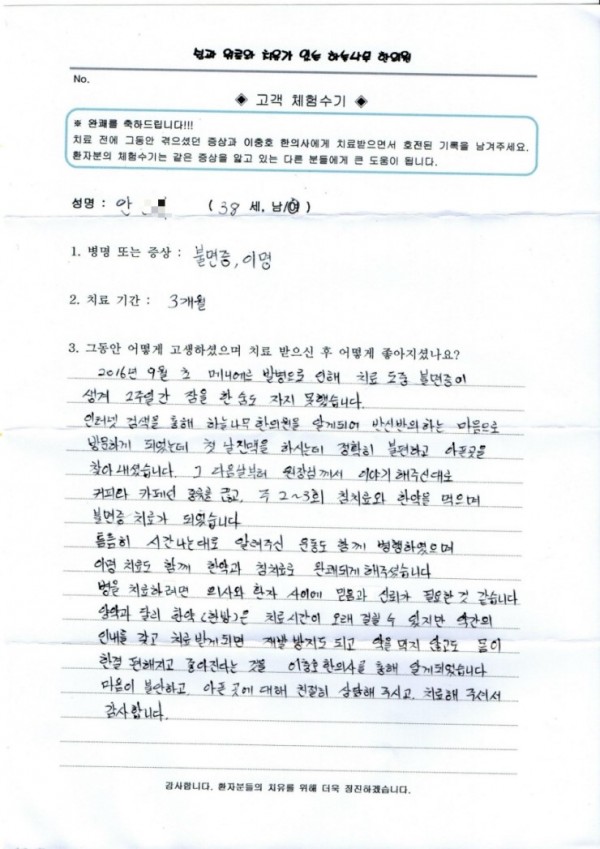 No.
◈ 고객 체험수기 ◈
※ 완쾌를 축하드립니다!!!
치료 전에 그동안 겪으셨던 증상과 이충호 한의사에게 치료받으면서 호전된 기록을 남겨주세요.
환자분의 체험수기는 같은 증상을 앓고 있는 다른 분들에게 큰 도움이 됩니다.
성명 : 안 ( 38 세, 남/여 )
1. 병명 또는 증상 : 불면증, 이명
2. 치료 기간 : 3개월
3. 그동안 어떻게 고생하셨으며 치료 받으신 후 어떻게 좋아지셨나요?
2016년 9월 초 메니에르 발병으로 인해 치료 도중 불면증이
생겨 2주일간 잠을 한 숨도 자지 못했습니다.
인터넷 검색을 통해 하늘나무한의원을 알게되어 반신반의하는 마음으로
방문하게 되었는데 첫 날진맥을 하시는데 정확히 불편하고 아픈곳을
찾아내셨습니다. 그 다음날부터 원장님께서 이야기 해주신대로
커피와 카페인 종류를 끊고, 주 2~3회 침치료와 한약을 먹으며
불면증 치료가 되었습니다
틈틈히 시간나는대로 알려주신 운동도 함께 병행하였으며
이명 치료도 함께 한약과 침치료로 완쾌되게 해주셨습니다
병을 치료하려면 의사와 환자 사이에 믿음과 신뢰가 필요한 것 같습니다
양약과 달리 한약(한방)은 치료시간이 오래 걸릴 수 있지만 약간의
인내를 갖고 치료받게되면 재발 방지도 되고 약을 먹지 않고도 몸이
한결 편해지고 좋아진다는 것을 이충호한의사를 통해 알게되었습니다
마음이 불안하고, 아픈 곳에 대해 친절히 상담해 주시고, 치료해 주셔서
감사합니다.
감사합니다. 환자분들의 치유를 위해 더욱 정진하겠습니다.